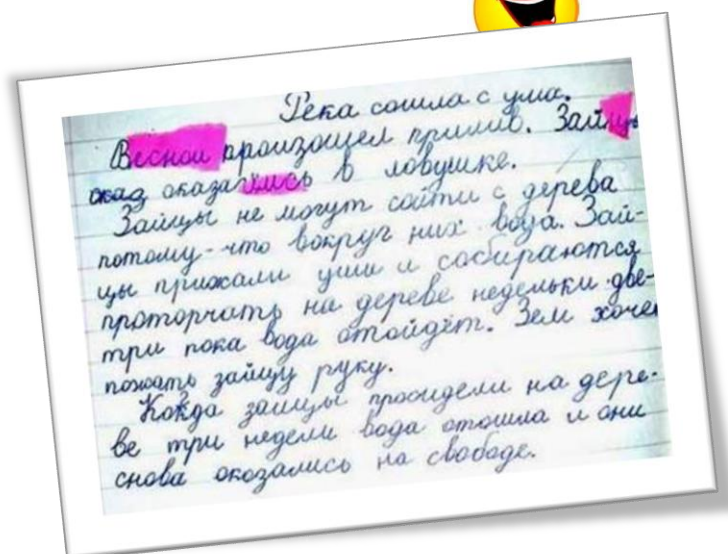 Река сошла с ума.
Весной произошел прилив. Зайцы
оказ оказались в ловушке.
Зайцы не могут сойти с дерева
потому-что вокруг них вода. Зай-
цы прижали уши и собираются
проторчать на дереве недельки две-
три пока вода отойдёт. Зем хочет
пожать зайцу руку.
Кокда зайцы просидели на дере-
ве три недели вода отошла и они
снова окозались на свободе.